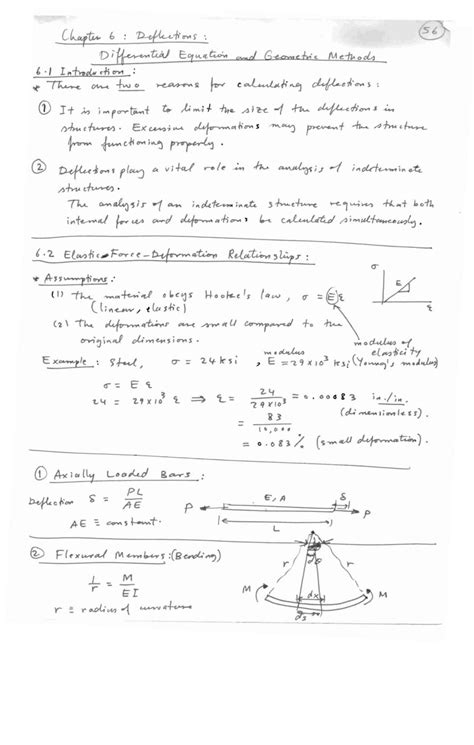 56
Chapter 6 : Deflections :
Differential Equation and Geometric Methods
6.1 Introduction :
* There are two reasons for calculating deflections :
① It is important to limit the size of the deflections in
structures. Excessive deformations may prevent the structure
from functioning properly.
② Deflections play a vital role in the analysis of indeterminate
structures.
The analysis of an indeterminate structure requires that both
internal forces and deformations be calculated simultaneously.
6.2 Elastic Force-Deformation Relationships :
* Assumptions :
(1) The material obeys Hooke's law, σ = E ε
(linear, elastic)
σ
E
ε
(2) The deformations are small compared to the
original dimensions.
modulus of
elasticity
(Young's modulus)
Example : Steel, σ = 24 ksi, E = 29×10³ ksi
modulus
σ = E ε
24 = 29×10³ ε ⇒ ε = 24/29×10³ = 0.00083 in./in.
(dimensionless).
= 83/10,000
= 0.083% (small deformation).
① Axially Loaded Bars :
Deflection δ = PL/AE
AE ≡ constant.
P E, A δ P
L
② Flexural Members : (Bending)
1/r = M/EI
r ≡ radius of curvature
dθ
r r
M M
dx
ds